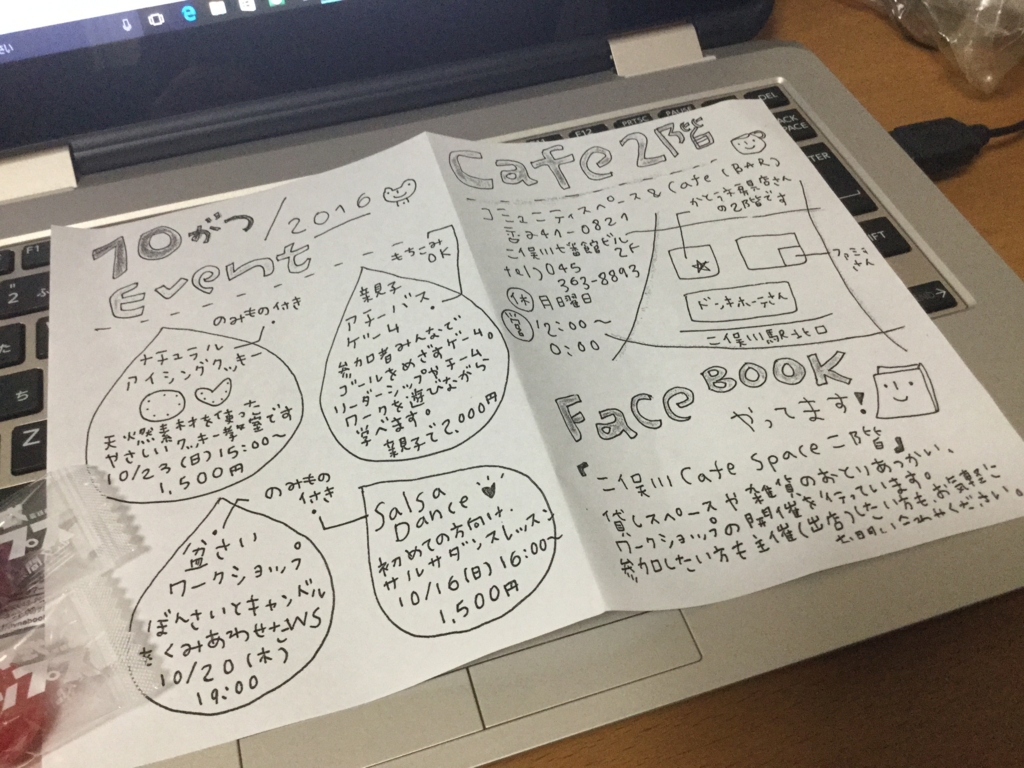 10がつ/2016
Event
のみもの付き
ナチュラル
アイシングクッキー
天然素材を使った
やさしいクッキー教室です
10/23(日)15:00〜
1,500円
もちこみ
OK
親子
アチーバス
ゲーム
参加者みんなで
ゴールをめざすゲーム。
リーダーシップやチーム
ワークを遊びながら
学べます。
親子で2,000円
のみもの
付き
盆さい
ワークショップ
ぼんさいとキャンドル
をくみあわせたWS
10/20(木)
19:00
Salsa
Dance
初めての方向け、
サルサダンスレッスン
10/16(日)16:00〜
1,500円
Cafe2階
コミュニティスペース&Cafe(BAR)
〒241-0821
二俣川七宝館ビル
2F
tel)045
363-8893
休 月曜日
12:00〜
0:00
かとう文房具店さん
の2階です
ファミマ
さん
ドン・キホーテさん
二俣川駅北口
FaceBOOK
やってます!
『二俣川Cafe Space二階』
貸しスペースや雑貨のおとりあつかい、
ワークショップの開催を行っています。
参加したい方も主催(出店)したい方もお気軽に
お問い合わせください。
F1
F12
PRTSC
PAUSE
DEL
BACK
SPACE
Z